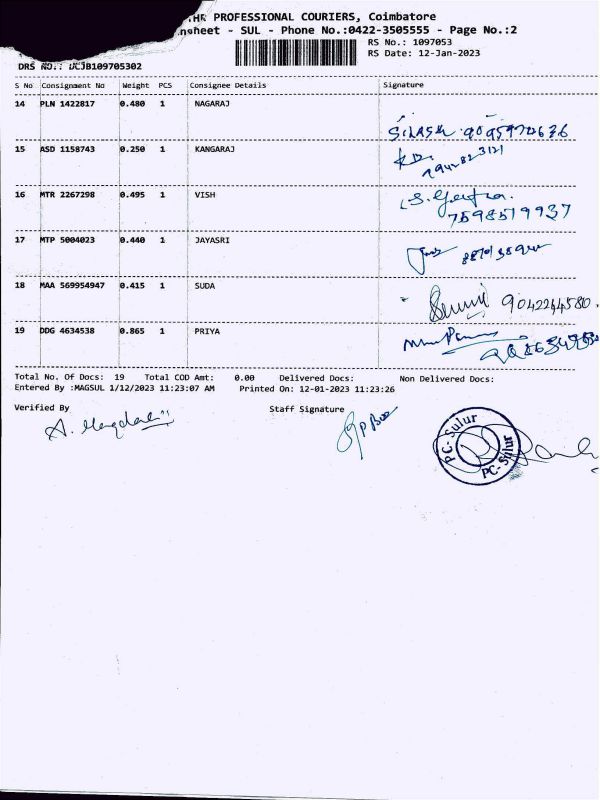 THE PROFESSIONAL COURIERS, Coimbatore
nsheet - SUL - Phone No.:0422-3505555 - Page No.:2
RS No.: 1097053
RS Date: 12-Jan-2023
DRS NO.: UCJB109705302
S No Consignment No Weight PCS Consignee Details Signature
14 PLN 1422817 0.480 1 NAGARAJ
15 ASD 1158743 0.250 1 KANGARAJ
16 MTR 2267298 0.495 1 VISH
7598519937
17 MTP 5004023 0.440 1 JAYASRI
18 MAA 569954947 0.415 1 SUDA
9042244580.
19 DDG 4634538 0.865 1 PRIYA
Total No. Of Docs: 19 Total COD Amt: 0.00 Delivered Docs: Non Delivered Docs:
Entered By :MAGSUL 1/12/2023 11:23:07 AM Printed On: 12-01-2023 11:23:26
Verified By Staff Signature
PC-Sulur
PC-Sulur